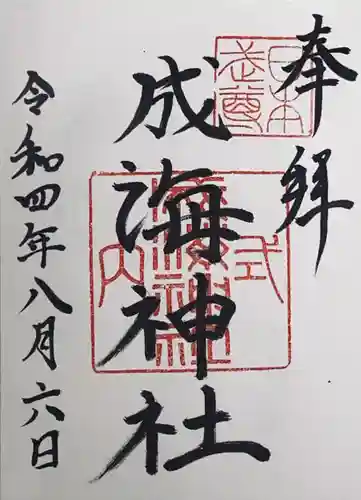 奉拝
日本武尊
式内
成海神社
令和四年八月六日